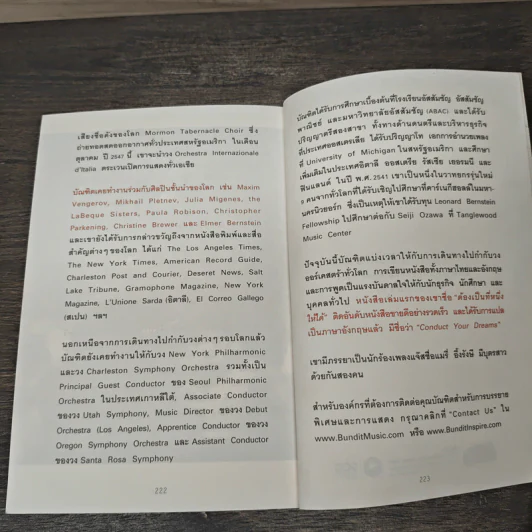 เสียงชื่อดังของโลก Mormon Tabernacle Choir ซึ่ง
ถ่ายทอดสดออกอากาศทั่วประเทศสหรัฐอเมริกา ในเดือน
ตุลาคม ปี 2547 นี้ เขาจะนำวง Orchestra Internazionale
d'Italia ตระเวนเปิดการแสดงทั่วเอเชีย
บัณฑิตเคยทำงานร่วมกับศิลปินชั้นนำของโลก เช่น Maxim
Vengerov, Mikhail Pletnev, Julia Migenes, the
LaBeque Sisters, Paula Robison, Christopher
Parkening, Christine Brewer และ Elmer Bernstein
และเขายังได้รับการกล่าวขวัญถึงจากหนังสือพิมพ์และสื่อ
สำคัญต่างๆ ของโลก ได้แก่ The Los Angeles Times,
The New York Times, American Record Guide,
Charleston Post and Courier, Deseret News, Salt
Lake Tribune, Gramophone Magazine, New York
Magazine, L'Unione Sarda (อิตาลี), El Correo Gallego
(สเปน) ฯลฯ
นอกเหนือจากการเดินทางไปกำกับวงต่างๆ รอบโลกแล้ว
บัณฑิตยังเคยทำงานให้กับวง New York Philharmonic
และวง Charleston Symphony Orchestra รวมทั้งเป็น
Principal Guest Conductor ของ Seoul Philharmonic
Orchestra ในประเทศเกาหลีใต้, Associate Conductor
ของวง Utah Symphony, Music Director ของวง Debut
Orchestra (Los Angeles), Apprentice Conductor ของวง
Oregon Symphony Orchestra และ Assistant Conductor
ของวง Santa Rosa Symphony
222
บัณฑิตได้รับการศึกษาเบื้องต้นที่โรงเรียนอัสสัมชัญ อัสสัมชัญ
พาณิชย์ และมหาวิทยาลัยอัสสัมชัญ (ABAC) และได้รับ
ปริญญาตรีสองสาขา ทั้งทางด้านดนตรีและบริหารธุรกิจ
ที่ประเทศออสเตรเลีย ได้รับปริญญาโท เอกการอำนวยเพลง
ที่ University of Michigan ในสหรัฐอเมริกา และศึกษา
เพิ่มเติมในประเทศอิตาลี ออสเตรีย รัสเซีย เยอรมนี และ
ฟินแลนด์ ในปี พ.ศ. 2541 เขาเป็นหนึ่งในวาทยกรรุ่นใหม่
คนจากทั่วโลกที่ได้รับเชิญไปศึกษาที่คาร์เนกี้ฮอลล์ในมหา-
นครนิวยอร์ก ซึ่งเป็นเหตุให้เขาได้รับทุน Leonard Bernstein
Fellowship ไปศึกษาต่อกับ Seiji Ozawa ที่ Tanglewood
Music Center
ปัจจุบันนี้บัณฑิตแบ่งเวลาให้กับการเดินทางไปกำกับวง
ออร์เคสตร้าทั่วโลก การเขียนหนังสือทั้งภาษาไทยและอังกฤษ
และการพูดเป็นแรงบันดาลใจให้กับนักธุรกิจ นักศึกษา และ
บุคคลทั่วไป หนังสือเล่มแรกของเขาชื่อ "ต้องเป็นที่หนึ่ง
ให้ได้" ติดอันดับหนังสือขายดีอย่างรวดเร็ว และได้รับการแปล
เป็นภาษาอังกฤษแล้ว มีชื่อว่า "Conduct Your Dreams"
เขามีภรรยาเป็นนักร้องเพลงแจ๊สชื่อแมรี่ อิ้งรังษี มีบุตรสาว
ด้วยกันสองคน
สำหรับองค์กรที่ต้องการติดต่อคุณบัณฑิตสำหรับการบรรยาย
พิเศษและการแสดง กรุณาคลิกที่ "Contact Us" ใน
www.BunditMusic.com หรือ www.BunditInspire.com
223